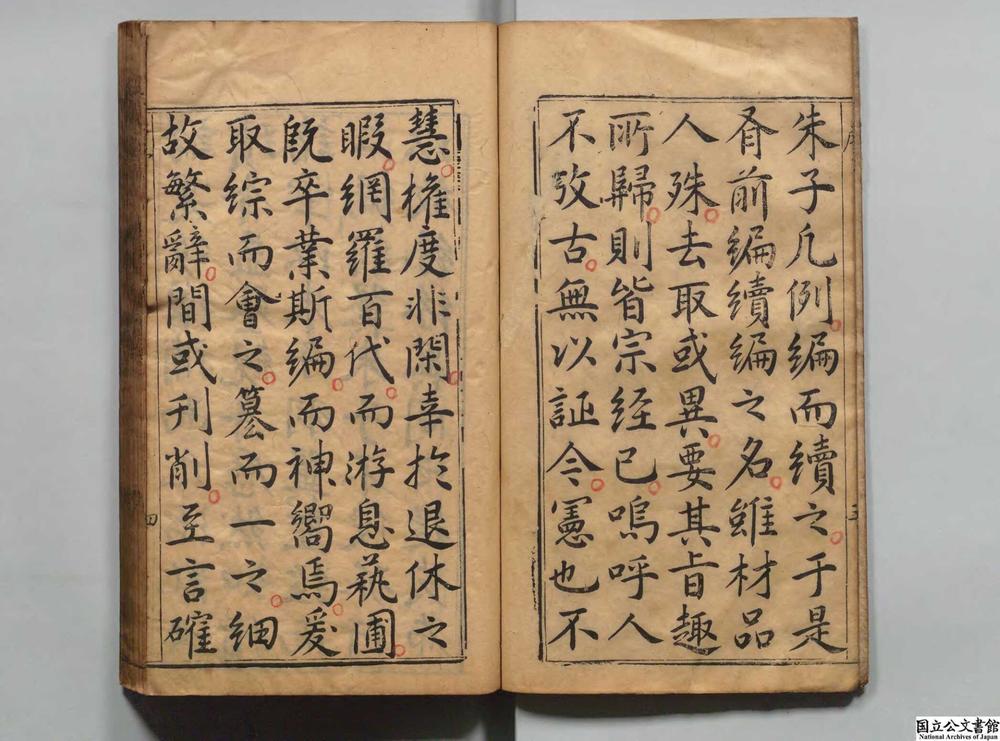 朱子凡例編而續之于是
胥前編續編之名雖材品
人殊去取或異要其旨趣
所歸則皆宗経已嗚呼人
不攷古無以証今憲也不
慧権度非閑幸於退休之
暇網羅百代而游息蓺圃
既卒業斯編而神嚮焉爰
取綜而會之纂而一之細
故繁辭間或刊削至言確
序
三
四
国立公文書館
National Archives of Japan